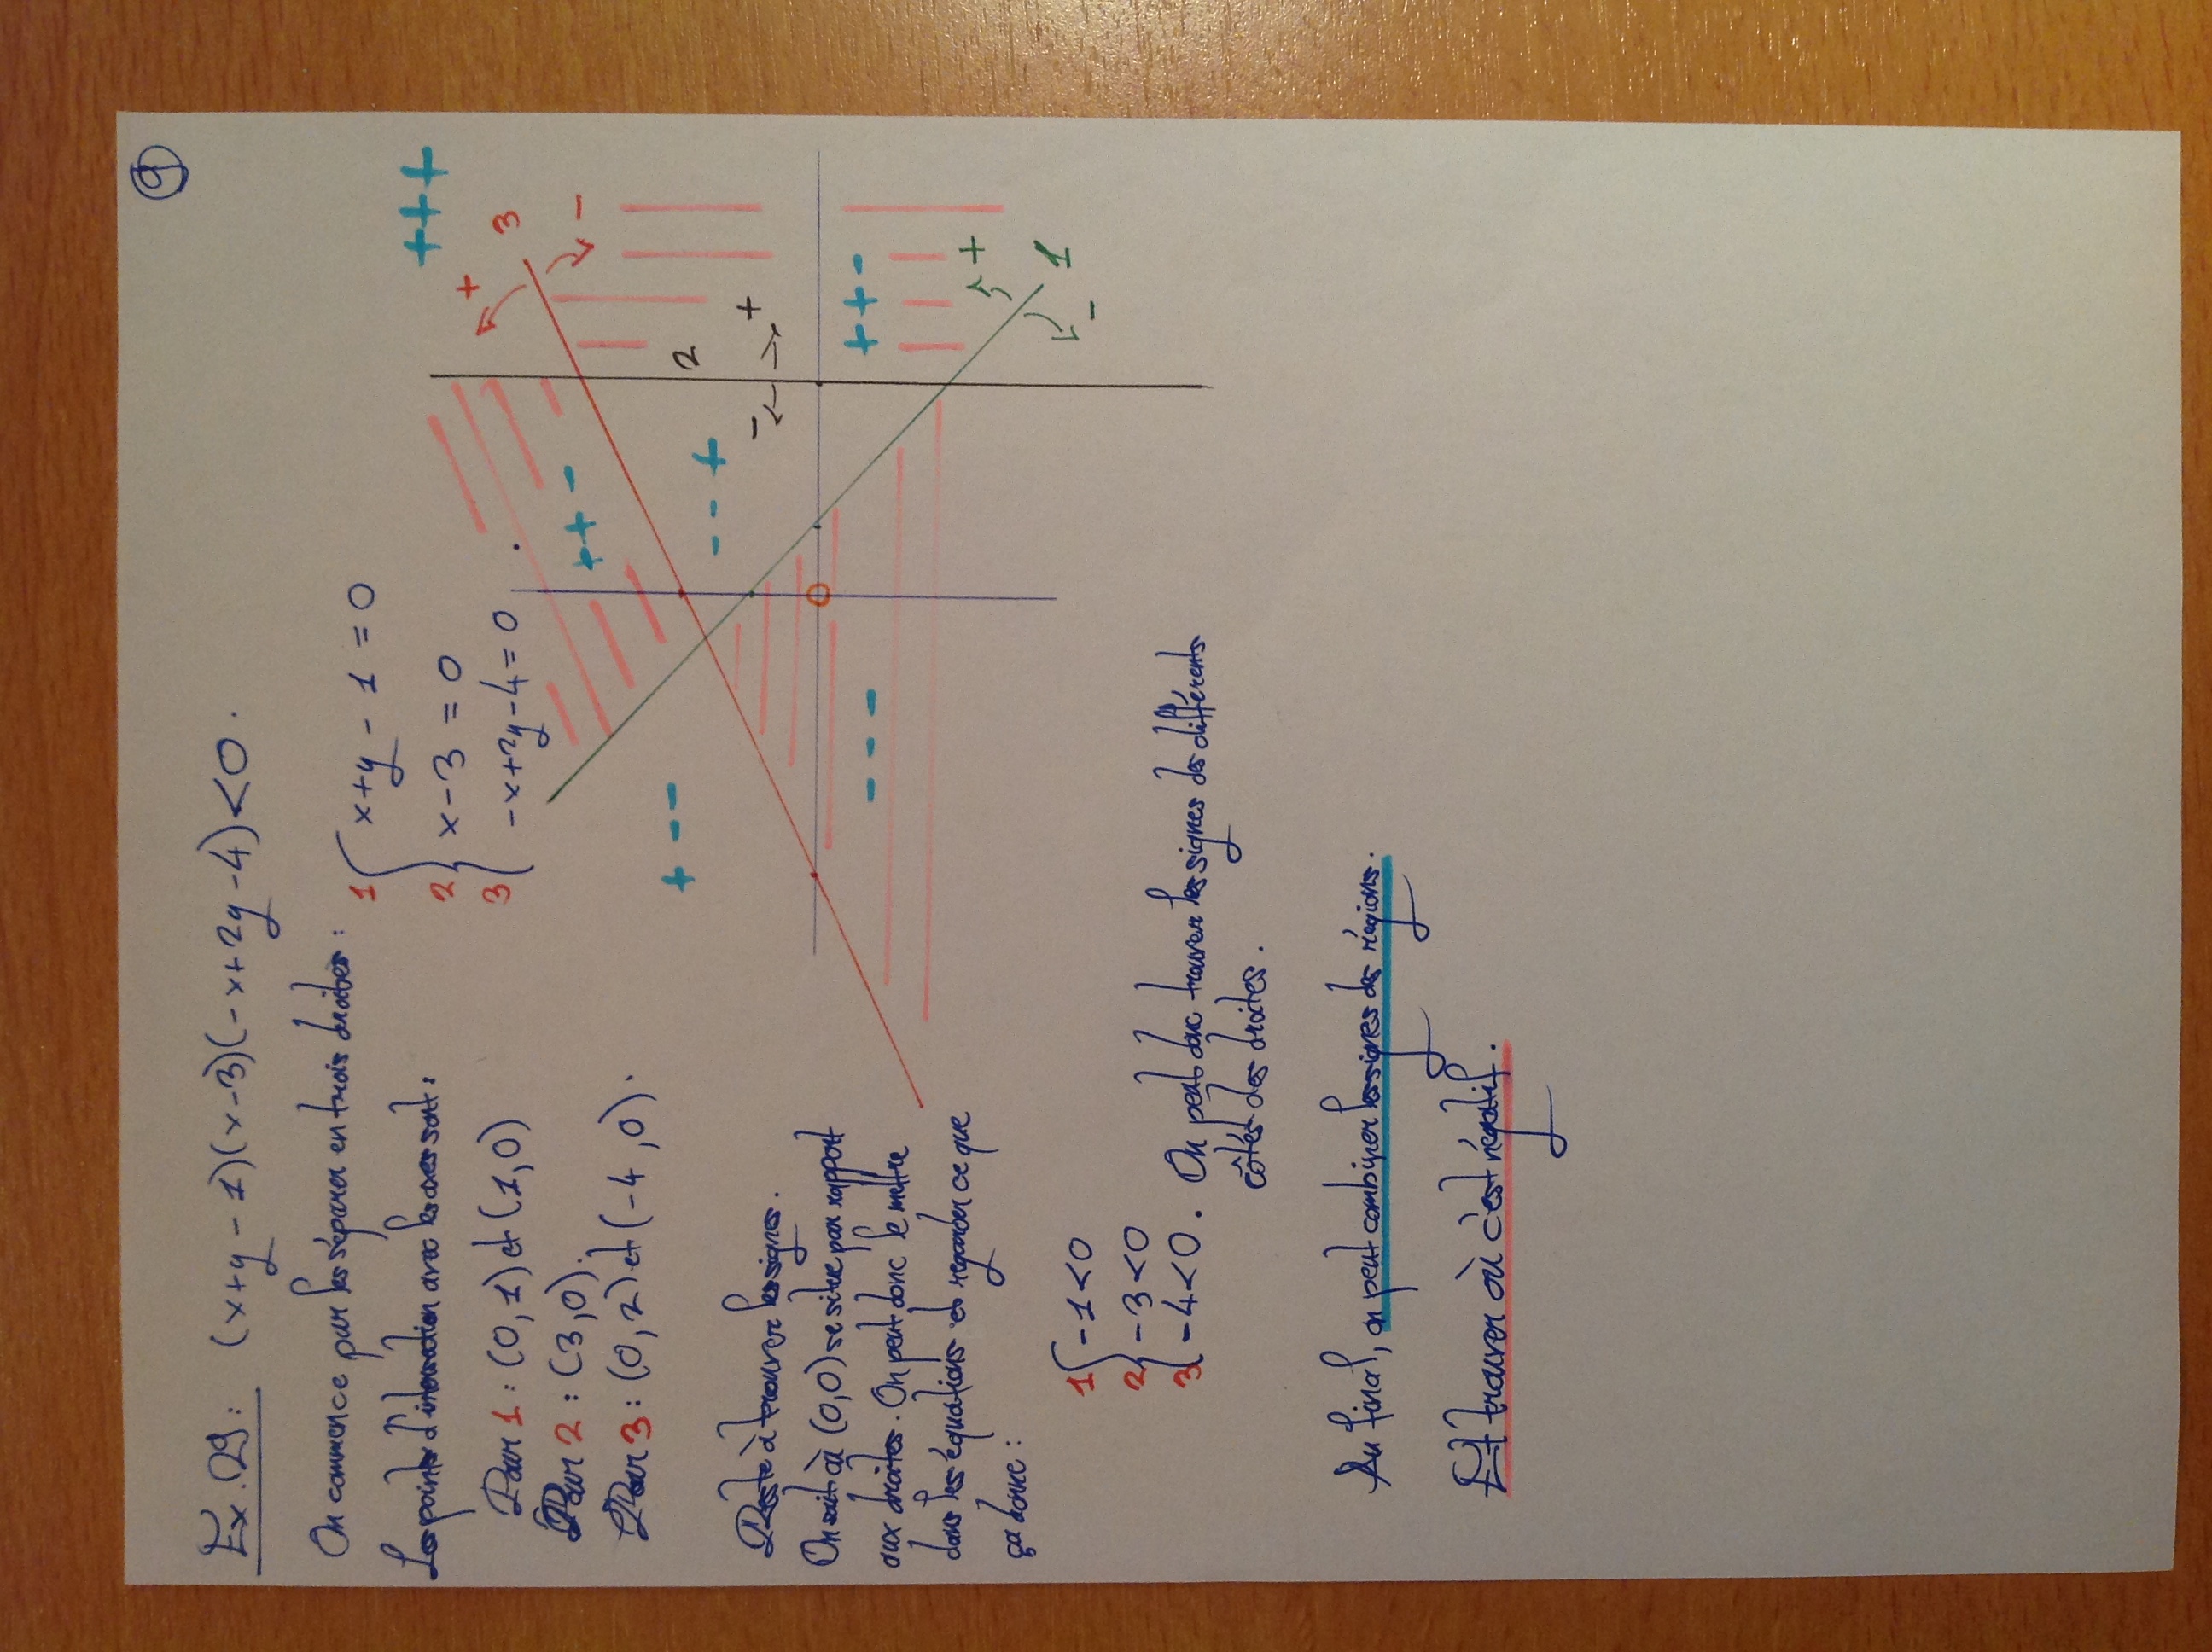 9
Ex. 29: (x+y-1)(x-3)(-x+2y-4)<0.
On commence par les séparer en trois droites :
1 x+y-1=0
2 x-3=0
3 -x+2y-4=0.
Les points d'intersection avec les axes sont :
Pour 1 : (0,1) et (1,0)
Pour 2 : (3,0).
Pour 3 : (0,2) et (-4,0).
Reste à trouver les signes.
On sait où (0,0) se situe par rapport
aux droites. On peut donc le mettre
dans les équations et regarder ce que
ça donne :
1 -1<0
2 -3<0
3 -4<0. On peut donc trouver les signes des différents
côtés des droites.
Au final, on peut combiner les signes des régions.
Et trouver où c'est négatif.
+++
+
3
++-
-
+--
--+
2
- +
---
++-
+
1
-